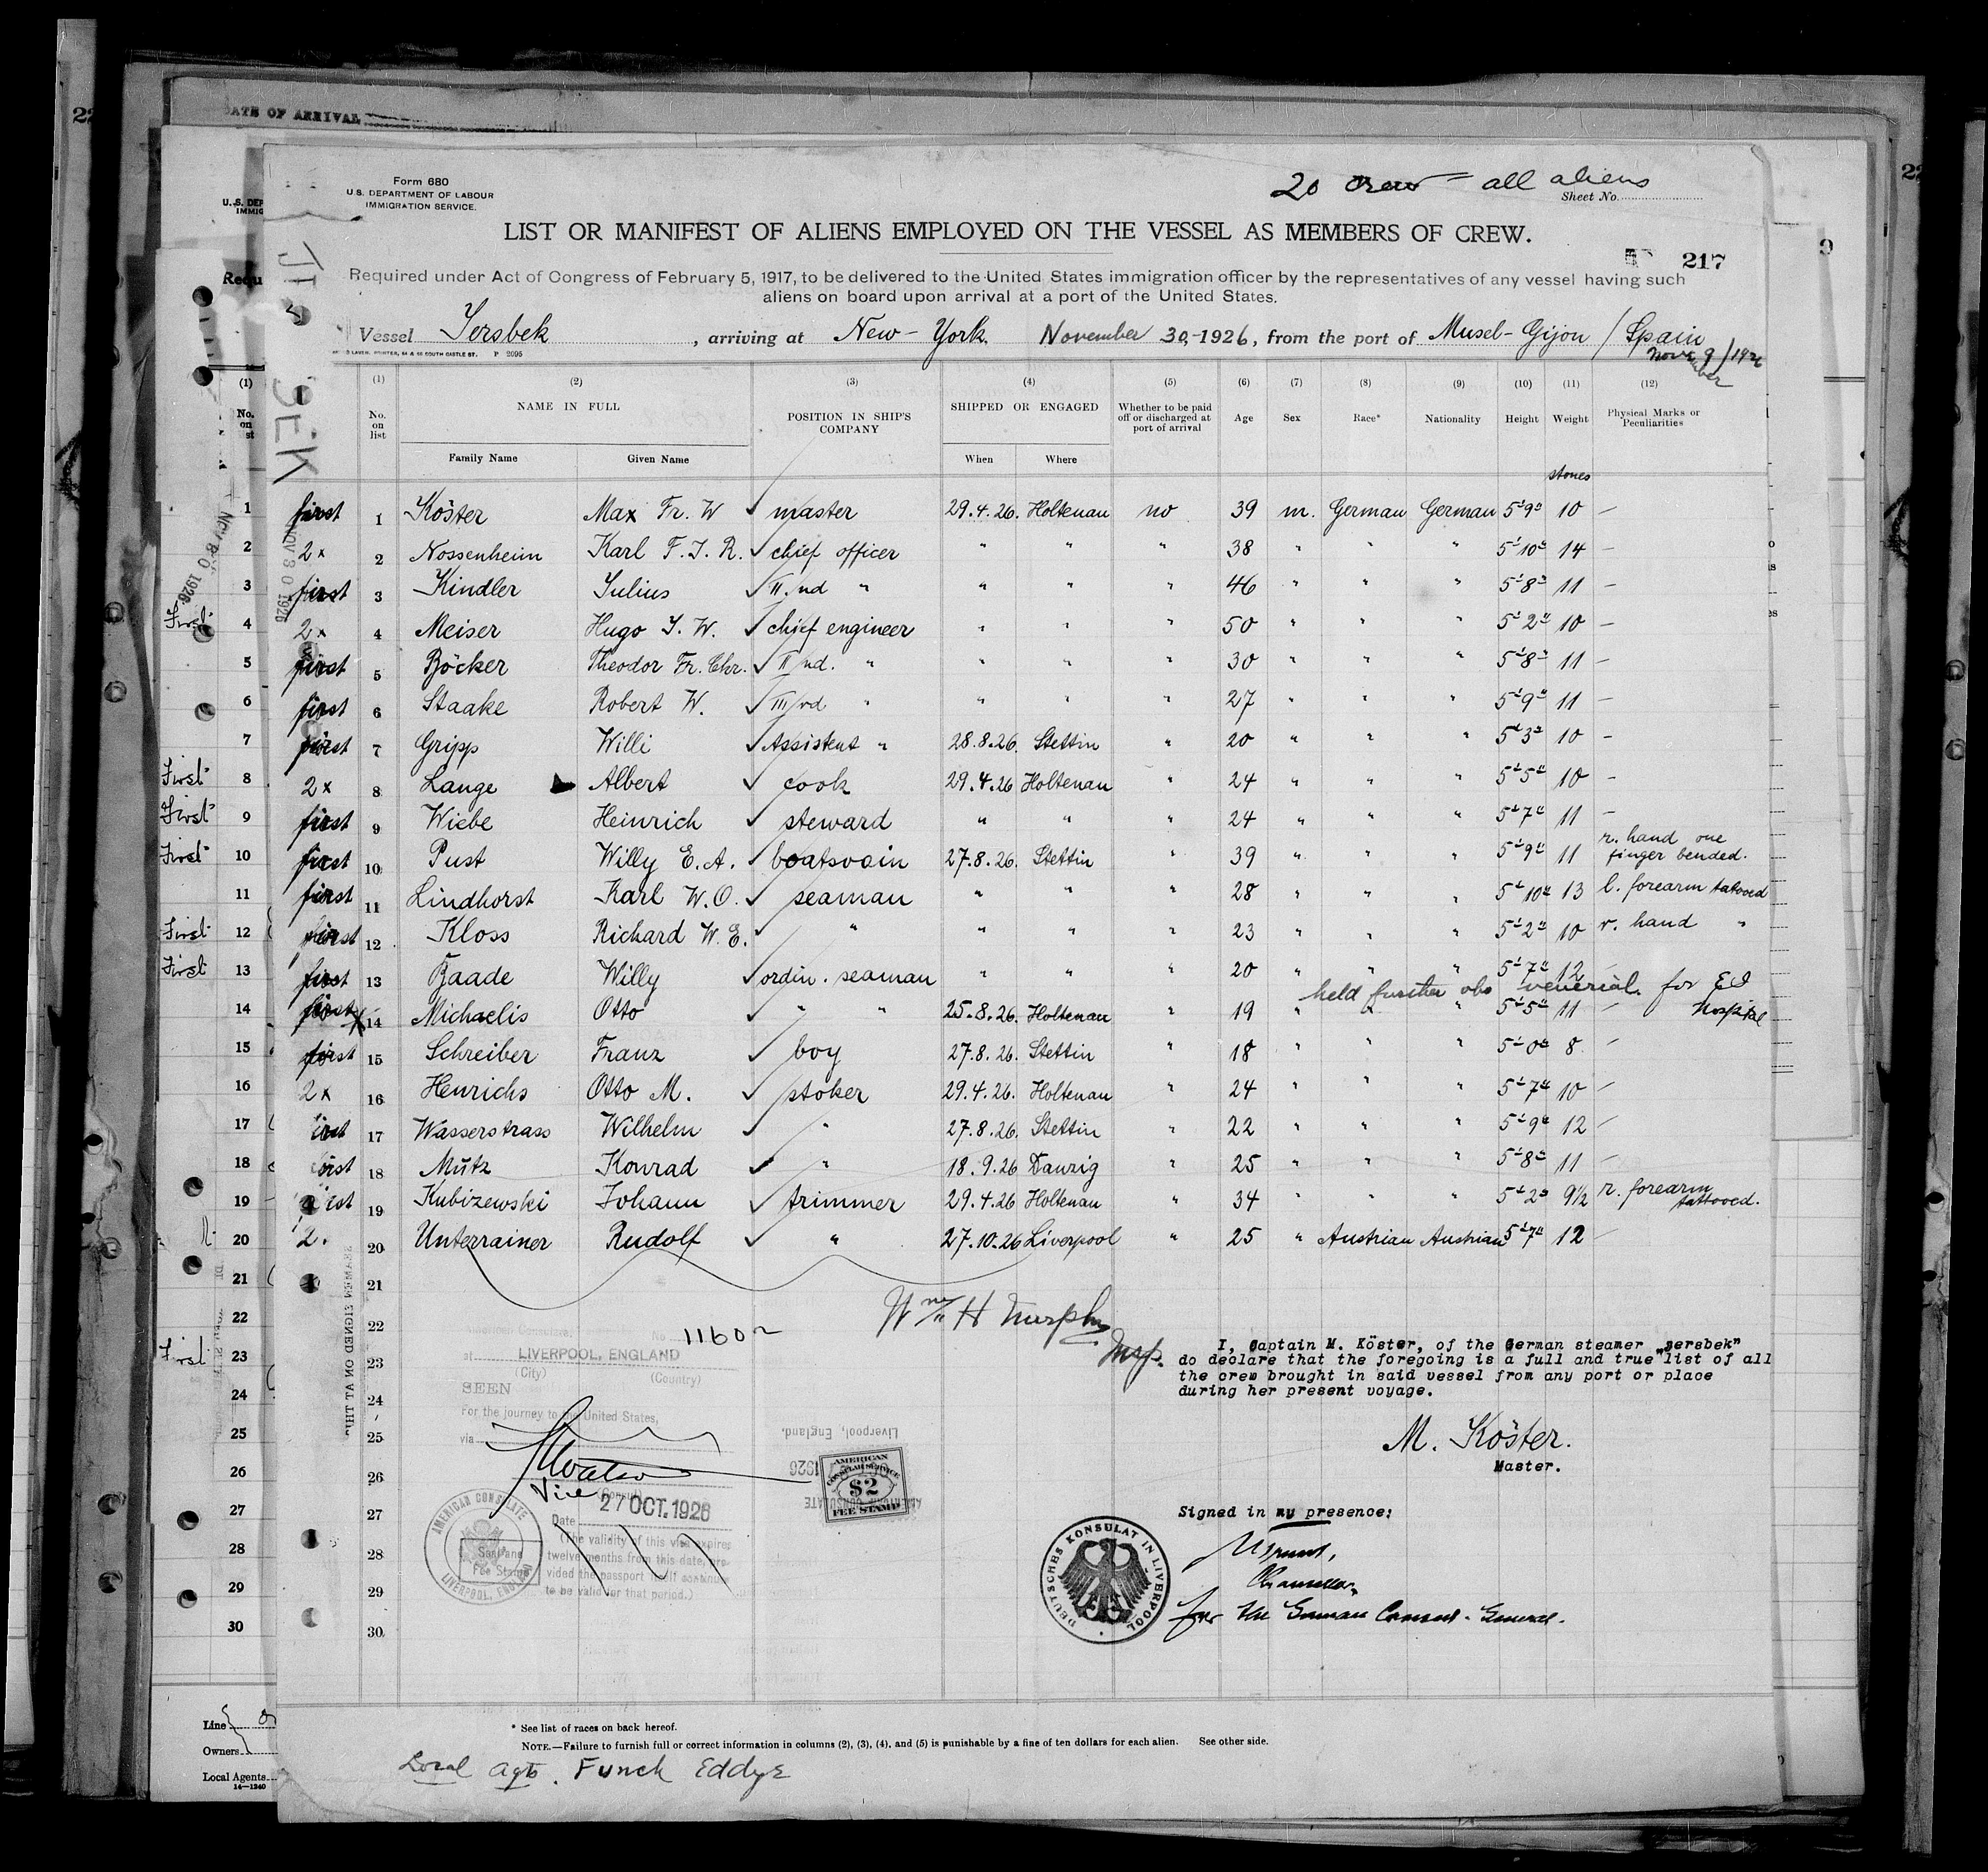 DATE OF ARRIVAL
Form 680
U.S. DEPARTMENT OF LABOUR
IMMIGRATION SERVICE.
20 crew = all aliens
Sheet No.
LIST OR MANIFEST OF ALIENS EMPLOYED ON THE VESSEL AS MEMBERS OF CREW.
217
Required under Act of Congress of February 5, 1917, to be delivered to the United States immigration officer by the representatives of any vessel having such
aliens on board upon arrival at a port of the United States.
Vessel Jersbek, arriving at New-York. November 30, 1926, from the port of Musel-Gijon / Spain
November 9/1926
(1) (2) (3) (4) (5) (6) (7) (8) (9) (10) (11) (12)
No. on list NAME IN FULL POSITION IN SHIP'S COMPANY SHIPPED OR ENGAGED Whether to be paid off or discharged at port of arrival Age Sex Race* Nationality Height Weight Physical Marks or Peculiarities
Family Name Given Name When Where
stones
first 1 Köster Max Fr. W ✓ master 29.4.26. Holtenau no 39 m. German German 5'9" 10 –
2x 2 Nossenheim Karl F.J.R. ✓ chief officer " " " 38 " " " 5'10" 14 –
first 3 Kindler Julius ✓ II nd " " " " 46 " " " 5'8" 11 –
2x 4 Meiser Hugo J. W. ✓ chief engineer " " " 50 " " " 5'2" 10 –
first 5 Böcker Theodor Fr. Chr. ✓ II nd. " " " " 30 " " " 5'8" 11 –
first 6 Staake Robert W. ✓ III rd " " " " 27 " " " 5'9" 11 –
first 7 Gripp Willi ✓ Assistent " 28.8.26. Stettin " 20 " " " 5'3" 10 –
2x 8 Lange Albert ✓ cook 29.4.26 Holtenau " 24 " " " 5'5" 10 –
first 9 Wiebe Heinrich ✓ steward " " " 24 " " " 5'7" 11 –
first 10 Pust Willy E.A. ✓ boatsvain 27.8.26. Stettin " 39 " " " 5'9" 11 r. hand one finger bended.
first 11 Lindhorst Karl W.O. ✓ seaman " " " 28 " " " 5'10" 13 l. forearm tatooed
first 12 Kloss Richard W.E. ✓ " " " " 23 " " " 5'2" 10 r. hand "
first 13 Baade Willy ✓ ordin. seaman " " " 20 " " " 5'7" 12 –
held further obs venerial. for EI hospital
first x 14 Michaelis Otto ✓ " " 25.8.26. Holtenau " 19 " " " 5'5" 11 –
first 15 Schreiber Franz ✓ boy 27.8.26. Stettin " 18 " " " 5'0" 8 –
2x 16 Henrichs Otto M. ✓ stoker 29.4.26. Holtenau " 24 " " 5'7" 10 –
first 17 Wasserstrass Wilhelm ✓ " 27.8.26. Stettin " 22 " " " 5'9" 12 –
first 18 Mütz Konrad ✓ " 18.9.26 Danzig " 25 " " " 5'8" 11 –
first 19 Kubizewski Johann ✓ trimmer 29.4.26 Holtenau " 34 " " " 5'2" 9½ r. forearm tattooed.
2. 20 Unterrainer Rudolf ✓ " 27.10.26 Liverpool " 25 " Austrian Austrian 5'7" 12 –
21
22
23
24
25
26
27
28
29
30
Wm H Murphy
Insp.
American Consulate, No. 11602
at LIVERPOOL, ENGLAND
(City) (Country)
SEEN
For the journey to the United States,
via
Vice (Consul)
Date 27 OCT. 1926
(The validity of this visa expires
twelve months from this date, pro-
vided the passport itself continues
to be valid for that period.)
AMERICAN CONSULATE
LIVERPOOL, ENGLAND
Fee Stamp
Liverpool, England.
AMERICAN
CONSULAR SERVICE
$2
FEE STAMP
SEAMEN SIGNED ON AT THIS
I, Captain M. Köster, of the German steamer „Jersbek"
do declare that the foregoing is a full and true list of all
the crew brought in said vessel from any port or place
during her present voyage.
M. Köster.
Master.
Signed in my presence:
Chancellor,
for the German Consul-General.
DEUTSCHES KONSULAT IN LIVERPOOL
* See list of races on back hereof.
NOTE.—Failure to furnish full or correct information in columns (2), (3), (4), and (5) is punishable by a fine of ten dollars for each alien. See other side.
Local agts. Funch Eddye
Line
Owners
Local Agents
14—1240